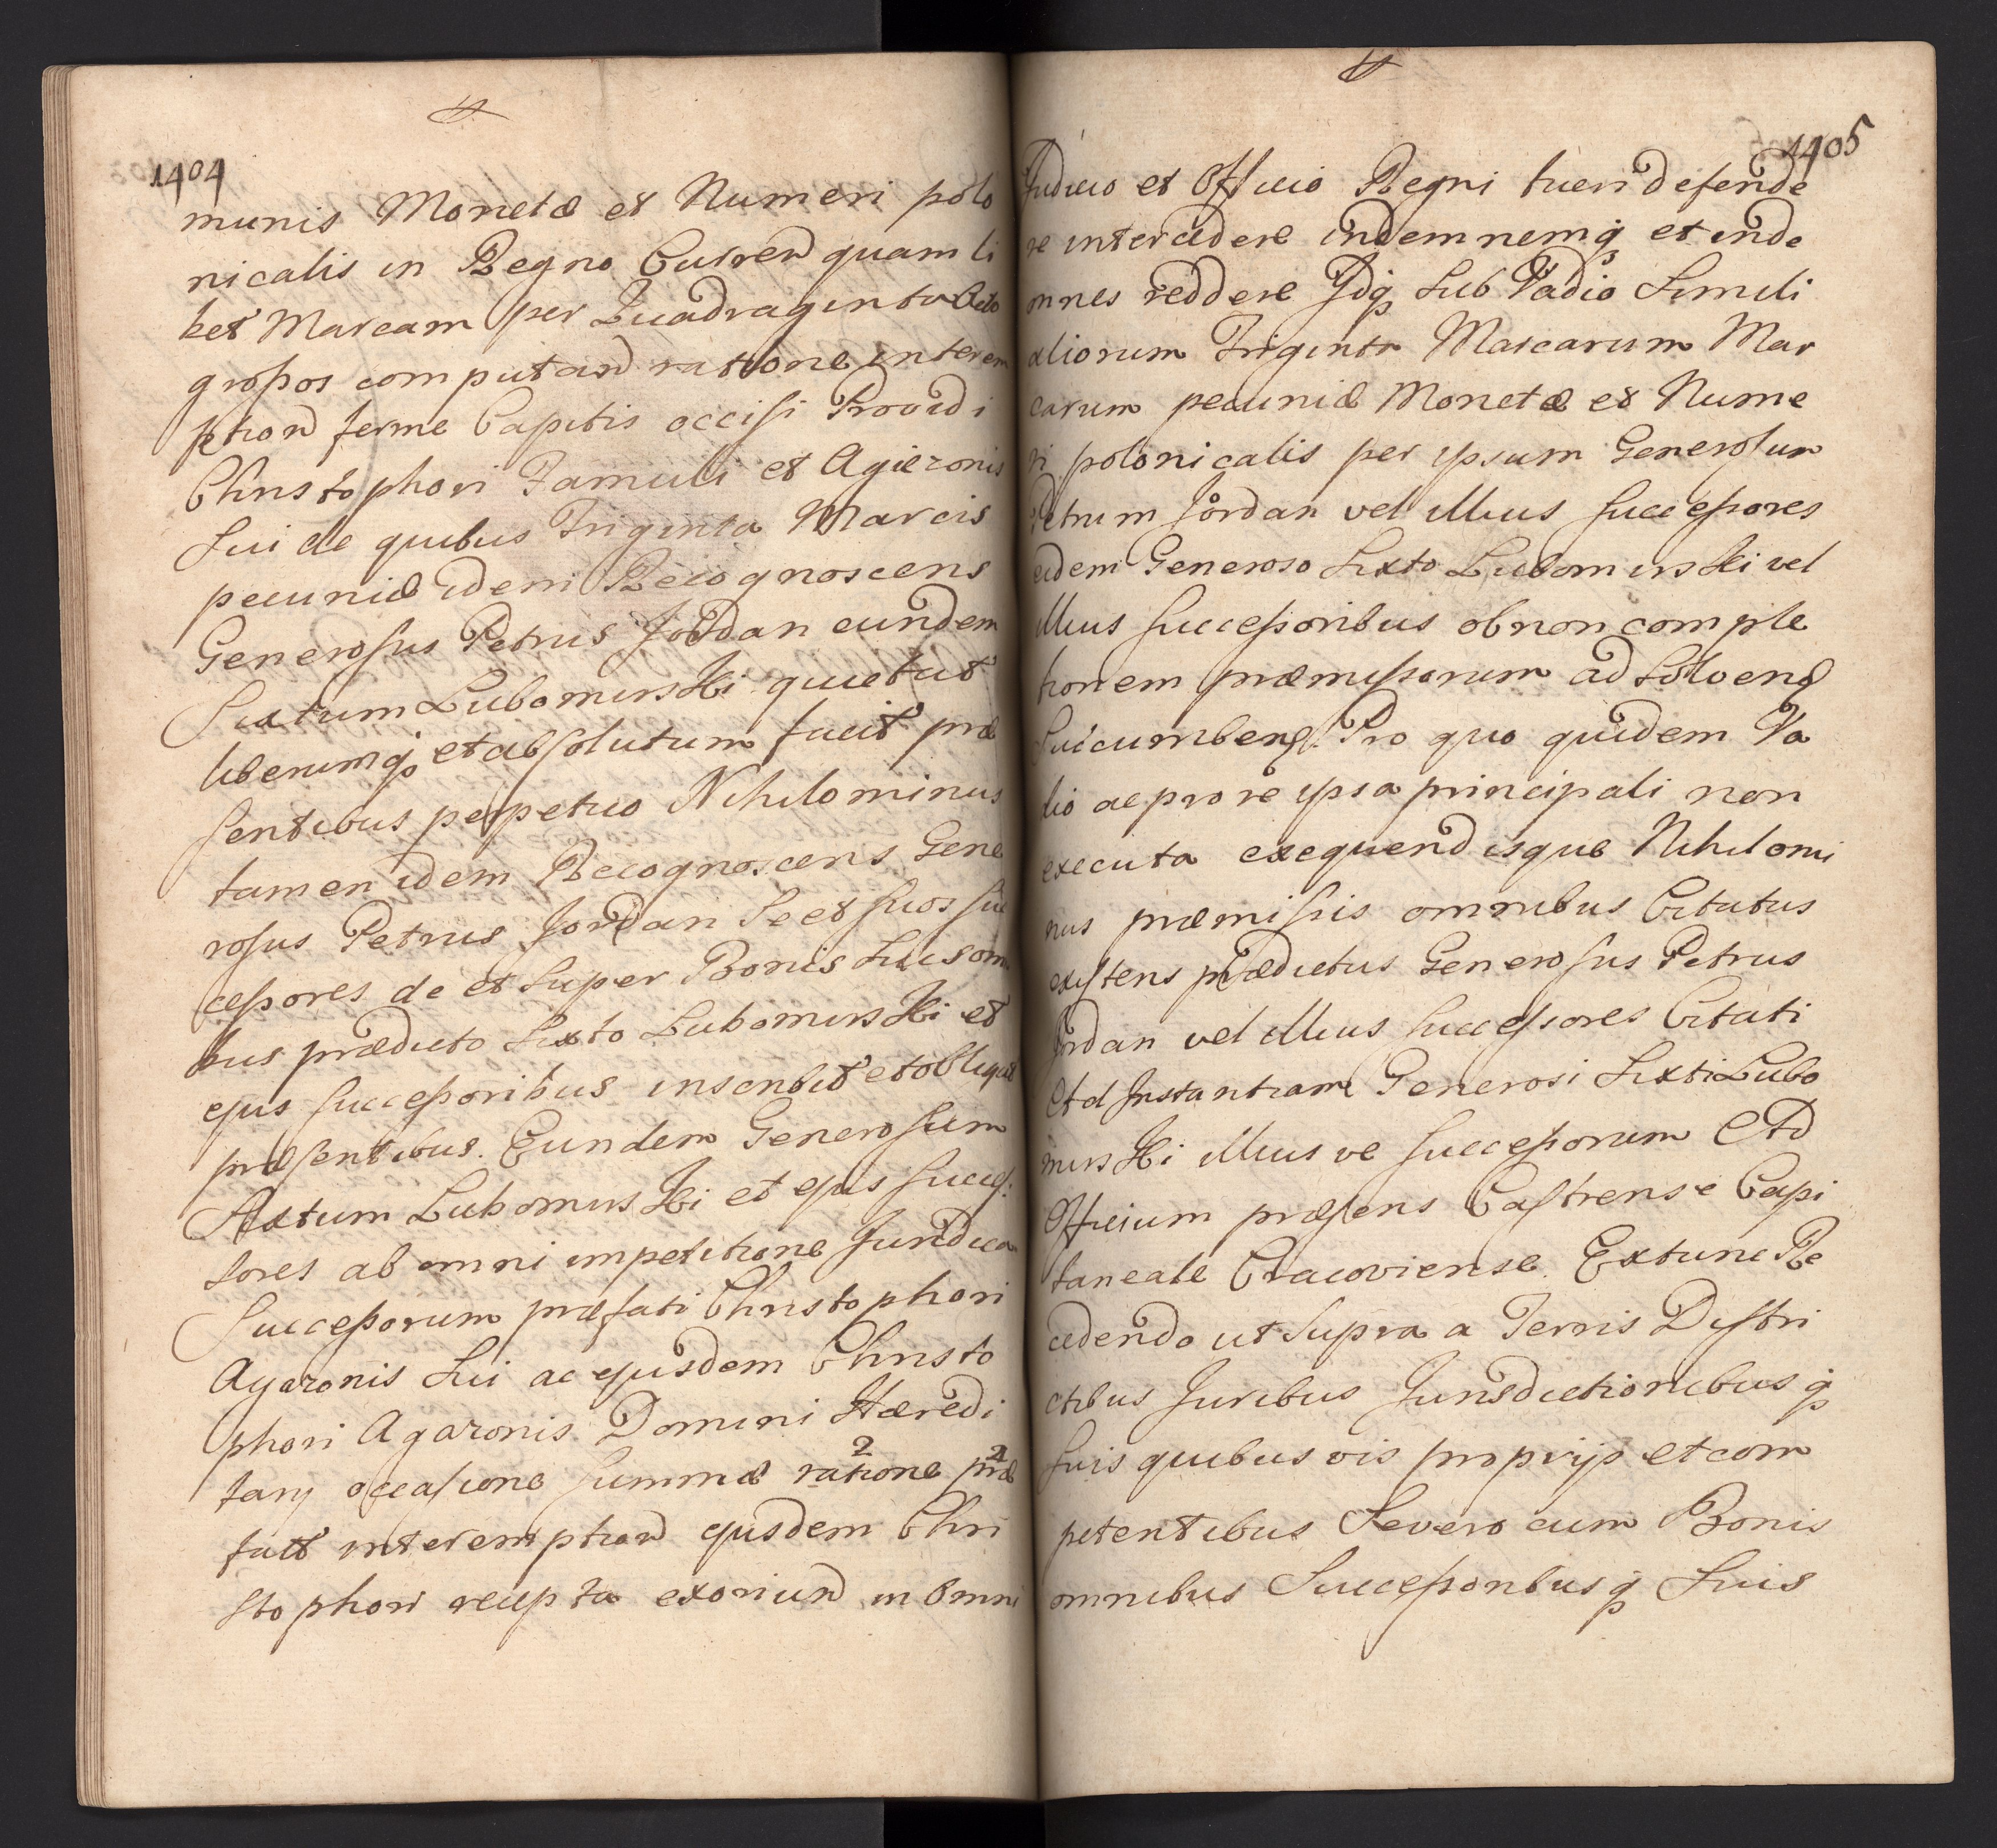 1404
munis Monetæ et Numeri polo
nicalis in Regno Curren quam li
bet Marcam per Quadraginta Octo
groſsos computan ratione interem
ption ferme Capitis occiſi Providi
Chriſtophori Famuli et Agazonis
Sui de quibus Triginta Marcis
pecuniæ idem Recognoscens
Generoſus Petrus Jordan eundem
Sixtum Lubomirski quietut
liberumq et abſolutum facit præ
ſentibus perpetuo Nihilominus
tamen idem Recognoscens Gene
roſus Petrus Jordan Se et ſuos ſuc
ceſsores de et Super Bonis Suis om
bus prædicto Sixto Lubomirski et
ejus ſucceſsoribus inscribit et obligat
præſentibus. Eundem Generoſum
Sixtum Lubomirski et ejus ſucceſ:
sores ab omni impetitione Juridica
Succeſsorum præfati Christophori
Agazonis Sui ac ejusdem Christo
phori Agazonis Domini Hæredi
tarij occaſione ſummæ ratione præ
2 2
fatt interemption ejusdem Chri
ſtophori recepta exoriun in omni
1405
Judicio et Officio Regni tueri defende
re intercedere indemnemq et inde
mnes reddere Idq Sub Vadio Simili
aliorum Triginta Marcarum Mar
carum pecuniæ Monetæ et Nume
ri polonicalis per ipsum Generoſum
Petrum Jordan vel illius ſucceſsores
eidem Generoso Sixto Lubomirski vel
illius ſucceſsoribus ob non comple
tionem præmiſsorum ad Solvend
Succumbend. Pro quo quidem Va
dio ac pro re ipsa principali non
executa exequendisque Nihilomi
nus præmiſsis omnibus Citatus
exiſtens prædictus Generoſus Petrus
Jordan vel illius ſucceſsores Citati
Ad Instantiam Generosi Sixti Lubo
mirski illiusve ſucceſsorum Ad
Officium præſens Caſtrense Capi
taneale Cracoviense. Extunc Re
cedendo ut Supra a Terris Diſtri
ctibus Juribus Jurisdictionibusq
ſuis quibusvis proprijs et com
petentibus Severo cum Bonis
omnibus Succeſsoribusq Suis